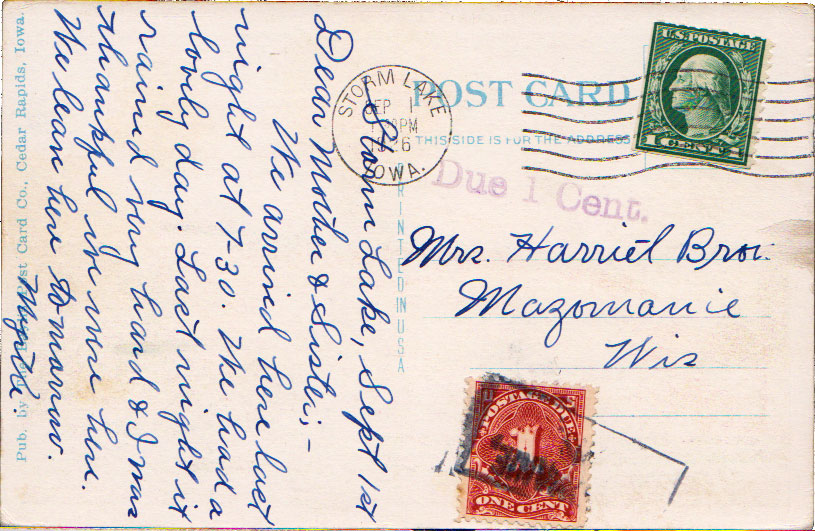 Storm Lake, Sept 1st
Dear Mother & Sister;-
We arrived here last
night at 7-30. We had a
lovely day. Last night it
rained very hard & I was
thankful we were here.
We leave here to-morrow.
Myrtle.
POST CARD
THIS SIDE IS FOR THE ADDRESS
STORM LAKE
SEP 1
PM
IOWA.
U.S. POSTAGE
1 CENT 1
Due 1 Cent.
Mrs. Harriet Brown
Mazomanie
Wis
PRINTED IN USA
POSTAGE DUE
1
ONE CENT
Pub. by The Post Card Co., Cedar Rapids, Iowa.